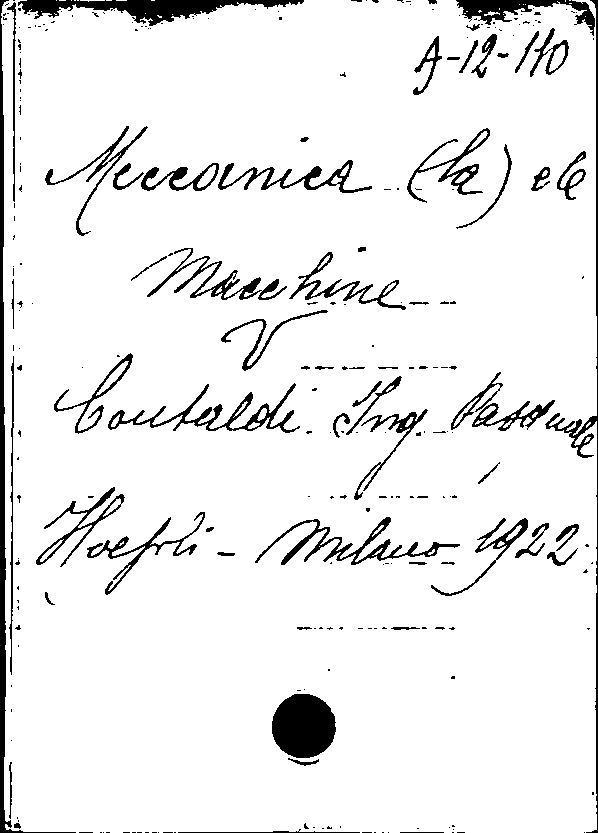 A-12-110
Meccanica (la) e le
Macchine
V
Contaldi Ing. Pasquale
Hoepli - Milano 1922